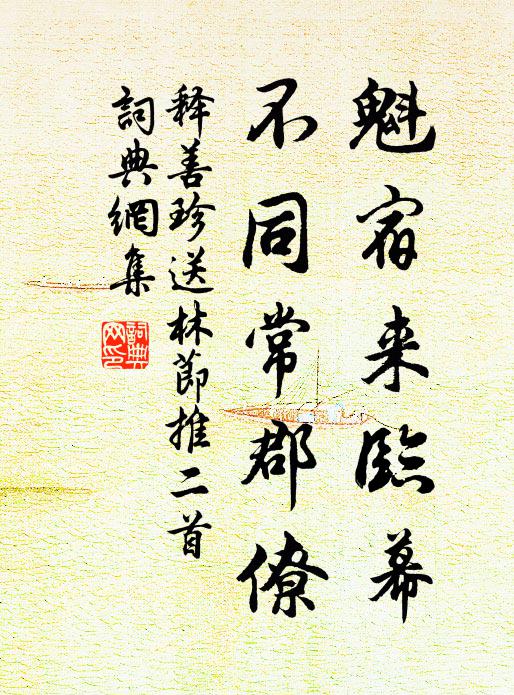 魁宿来臨幕
不同常郡僚
释善珍送林節推二首
詞典網集
詞典网印